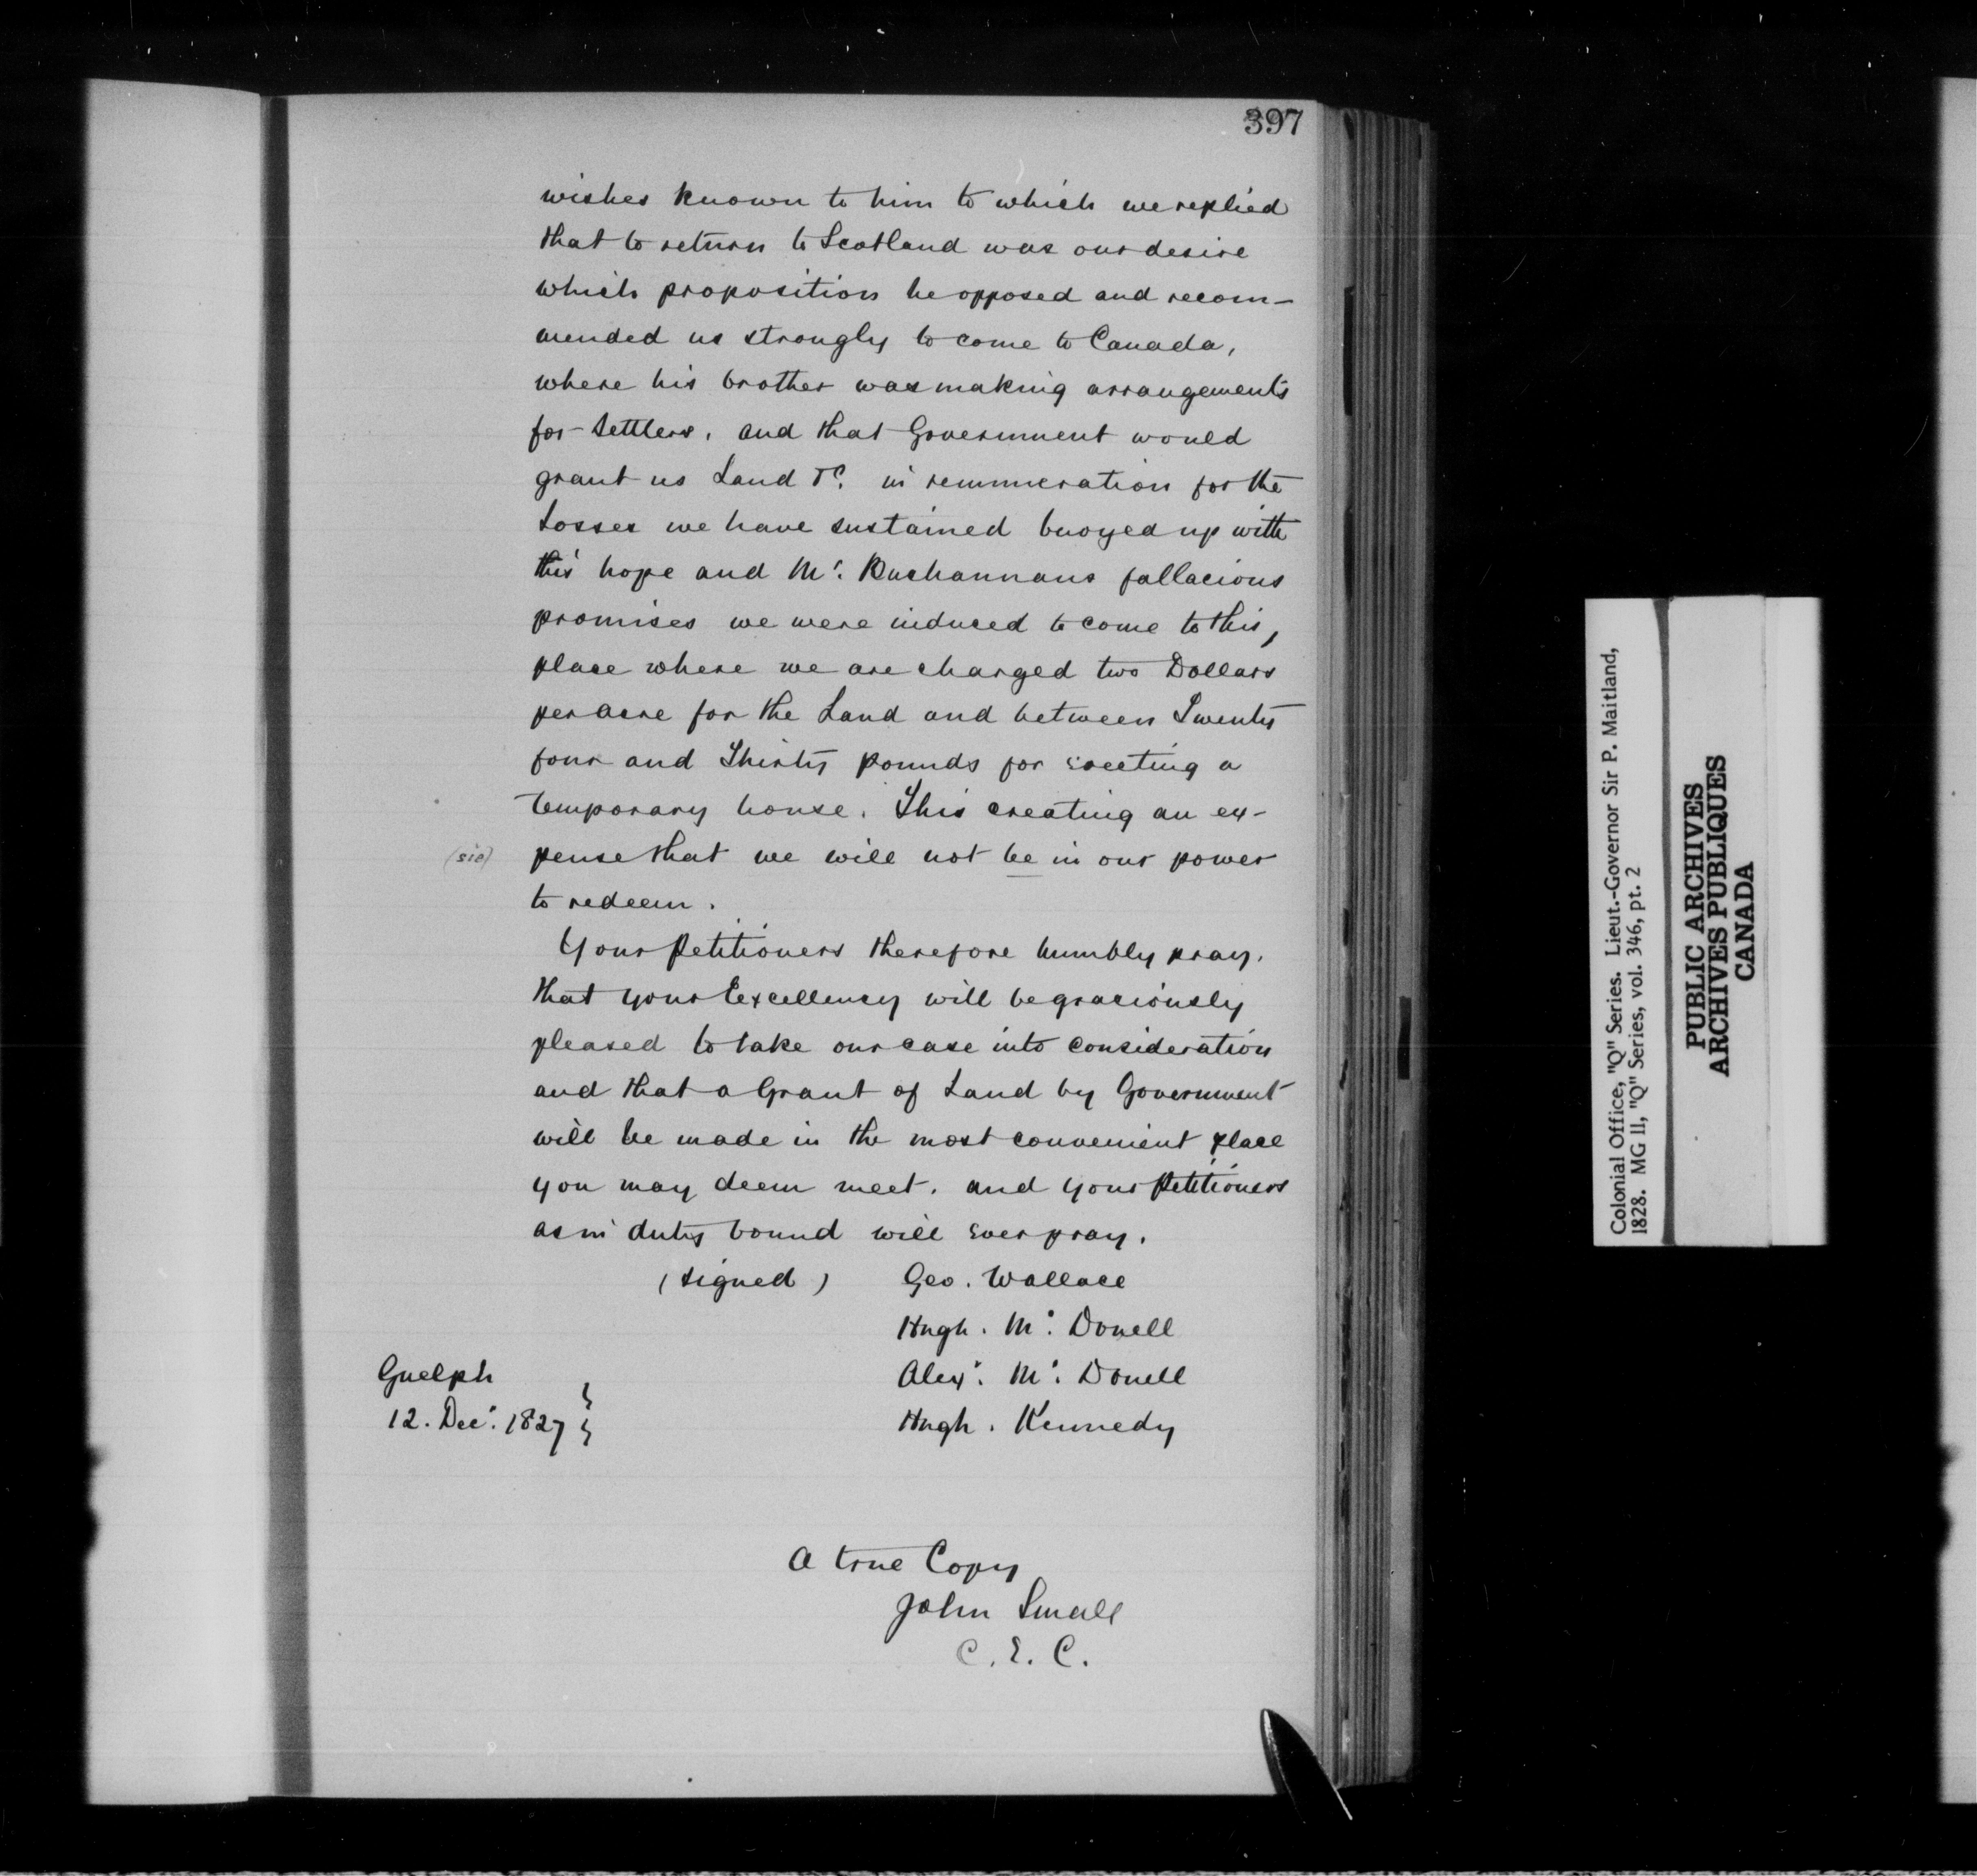 397
wishes known to him to which we replied
that to return to Scotland was our desire
which proposition he opposed and recom-
mended us strongly to come to Canada,
where his brother was making arrangements
for Settlers, and that Government would
grant us Land &c. in remuneration for the
Losses we have sustained buoyed up with
this hope and Mr. Buchannans fallacious
promises we were induced to come to this,
place where we are charged two Dollars
per acre for the Land and between Twenty
four and Thirty pounds for erecting a
temporary house. This creating an ex-
(sic) pense that we will not be in our power
to redeem.
Your Petitioners therefore humbly pray.
that your Excellency will be graciously
pleased to take our case into consideration
and that a Grant of Land by Government
will be made in the most convenient place
you may deem meet. and your Petitioners
as in duty bound will ever pray.
(signed) Geo. Wallace
Hugh. Mc. Donell
Alexr. Mc. Donell
Hugh. Kennedy
Guelph
12. Decr. 1827
A true Copy
John Small
C. E. C.
Colonial Office, "Q" Series. Lieut.-Governor Sir P. Maitland,
1828. MG 11, "Q" Series, vol. 346, pt. 2
PUBLIC ARCHIVES
ARCHIVES PUBLIQUES
CANADA